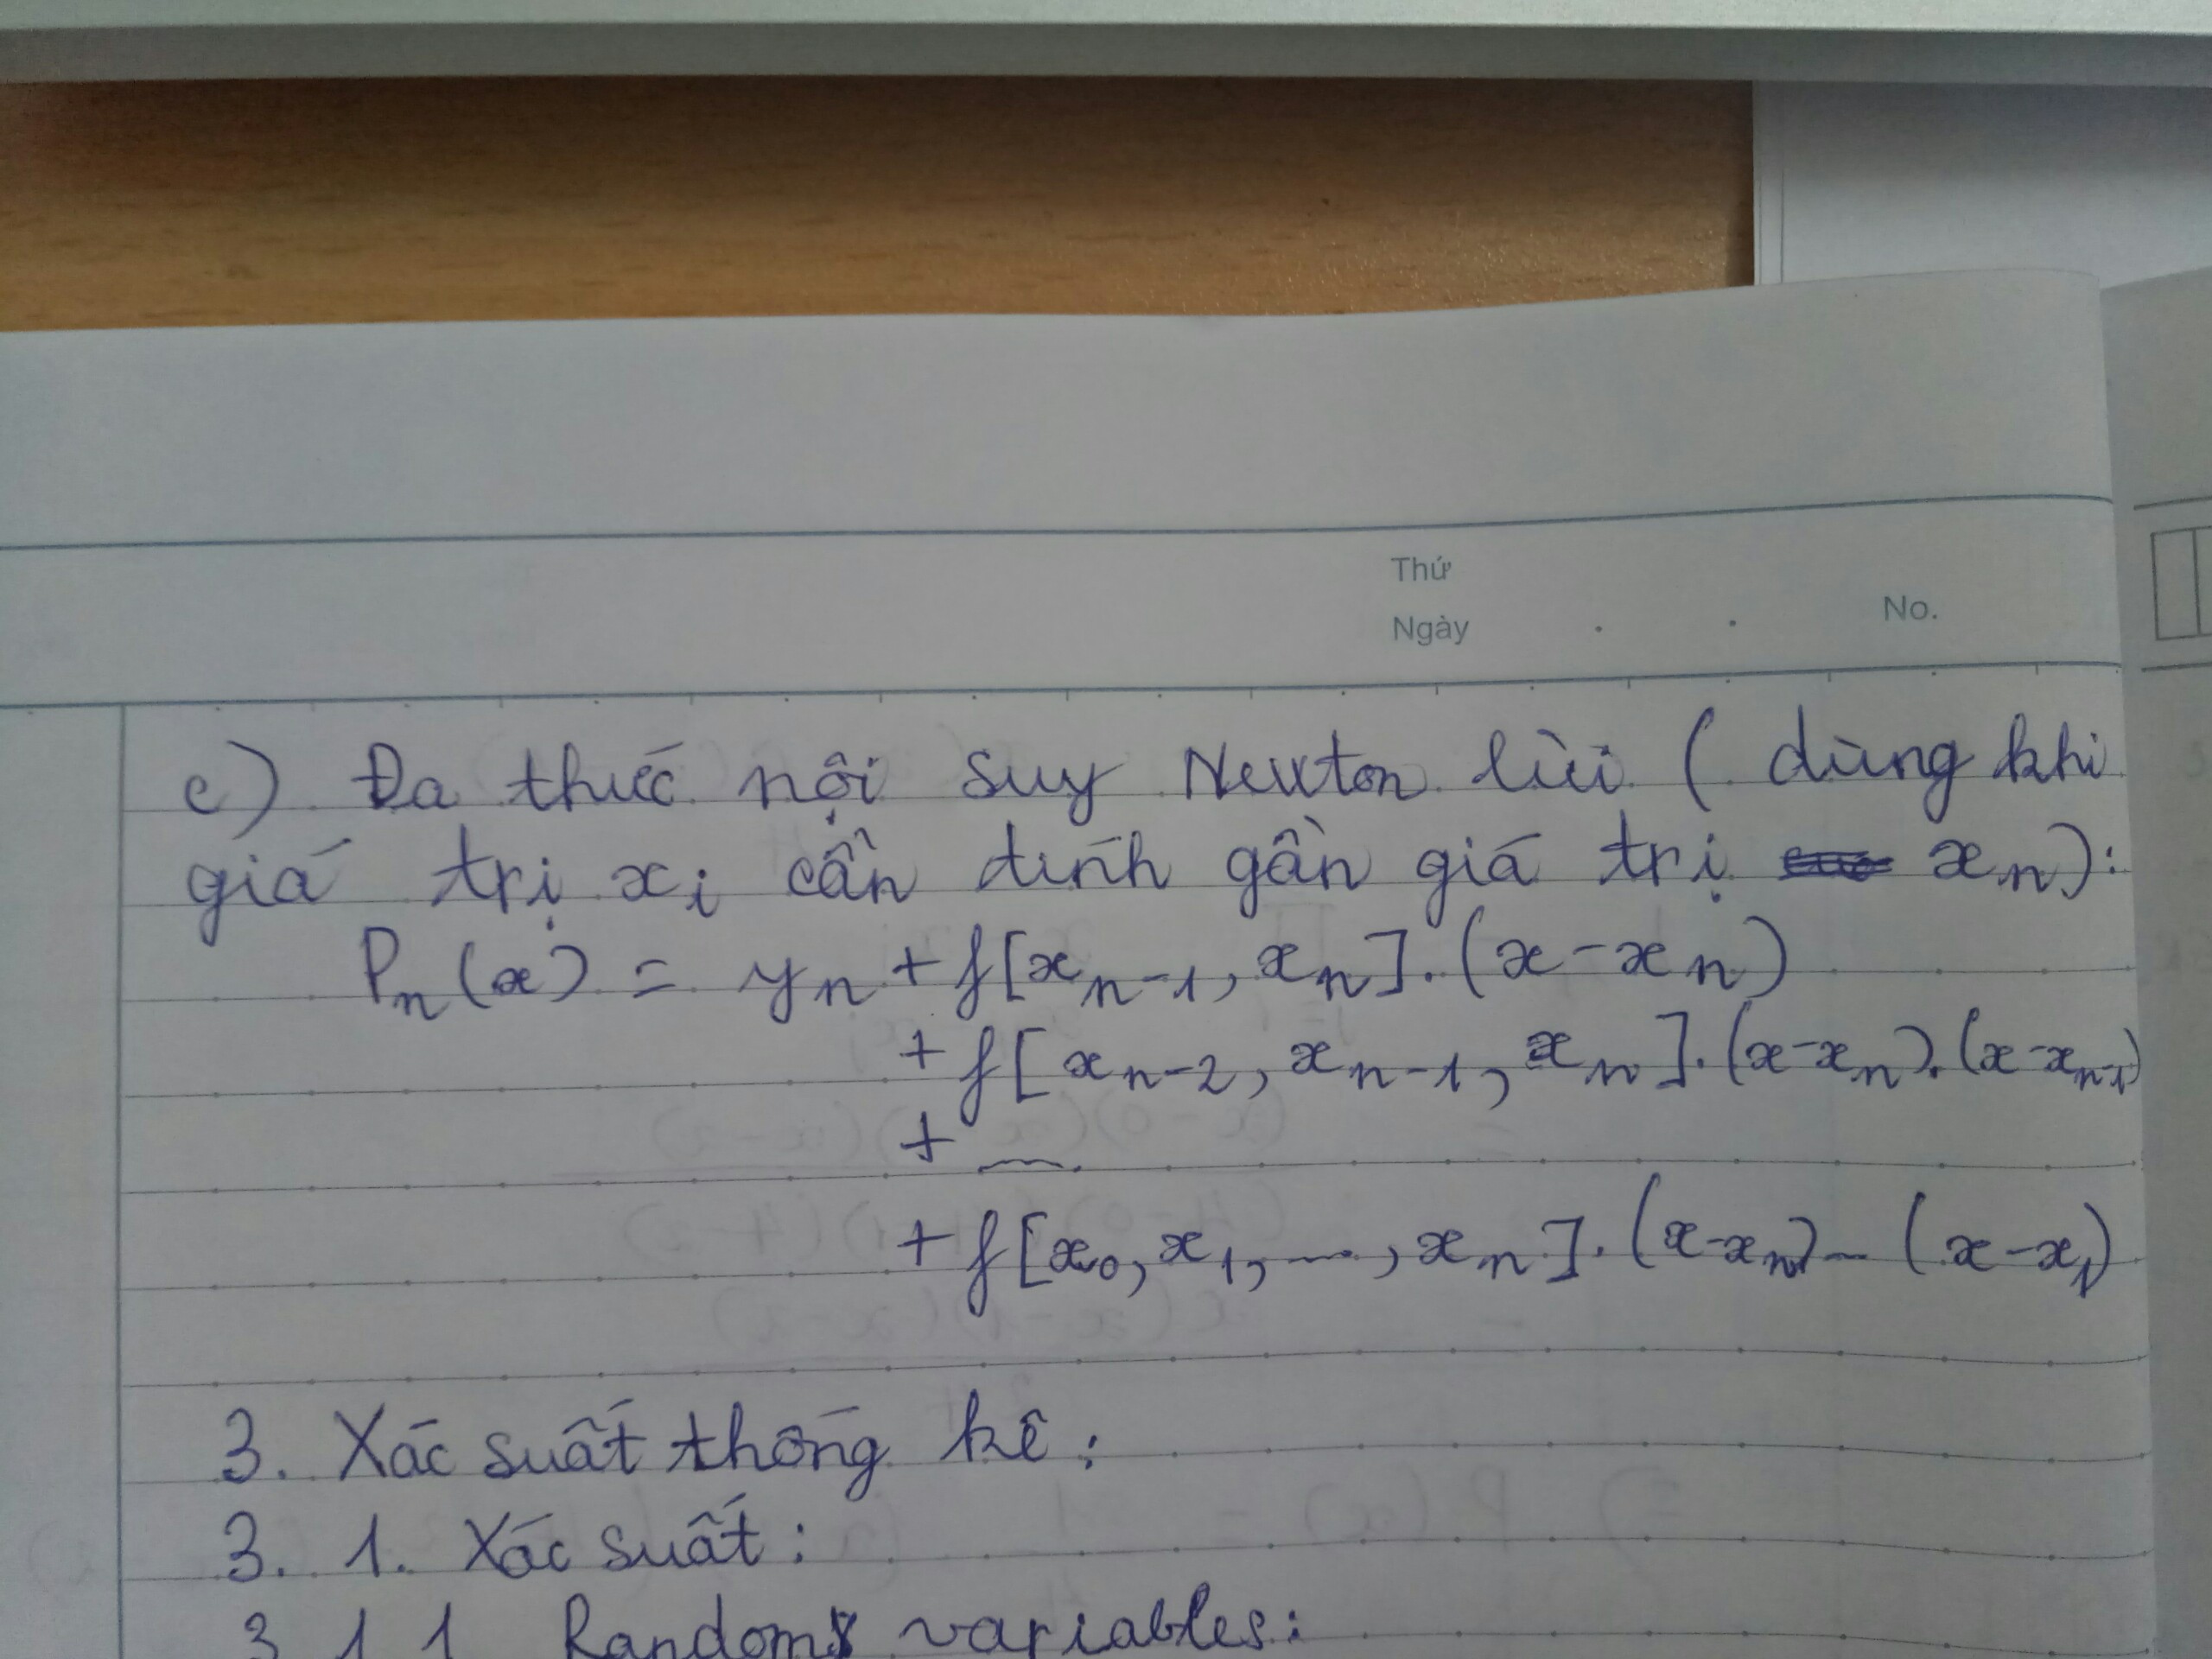 Thứ
Ngày . . No.
c) Đa thức nội suy Newton lùi ( dùng khi
giá trị xᵢ cần tính gần giá trị xₙ):
Pₙ(x) = yₙ + f[xₙ₋₁, xₙ].(x-xₙ)
+ f[xₙ₋₂, xₙ₋₁, xₙ].(x-xₙ).(x-xₙ₋₁)
+ ...
+ f[x₀, x₁, ..., xₙ].(x-xₙ)...(x-x₁)
3. Xác suất thống kê:
3. 1. Xác suất:
3. 1. 1. Random variables: